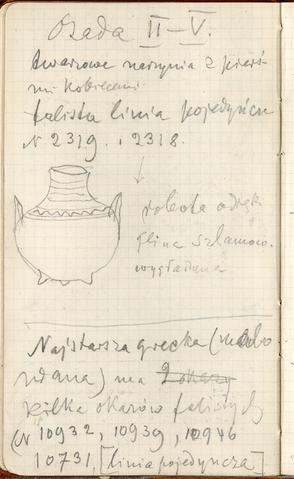 Osada II–V.
twarzowe naczynia z pierś-
mi kobiecemi
falista linia pojedyńcza
N 2319. i 2318.
↓
robota od ręki
glina szlamow.
wygładzana
Najstarsza grecka (malo
wana) ma 2 okazy
kilka okazów falistych
(N 10932, 10939, 10946
10731, [linia pojedyncza]